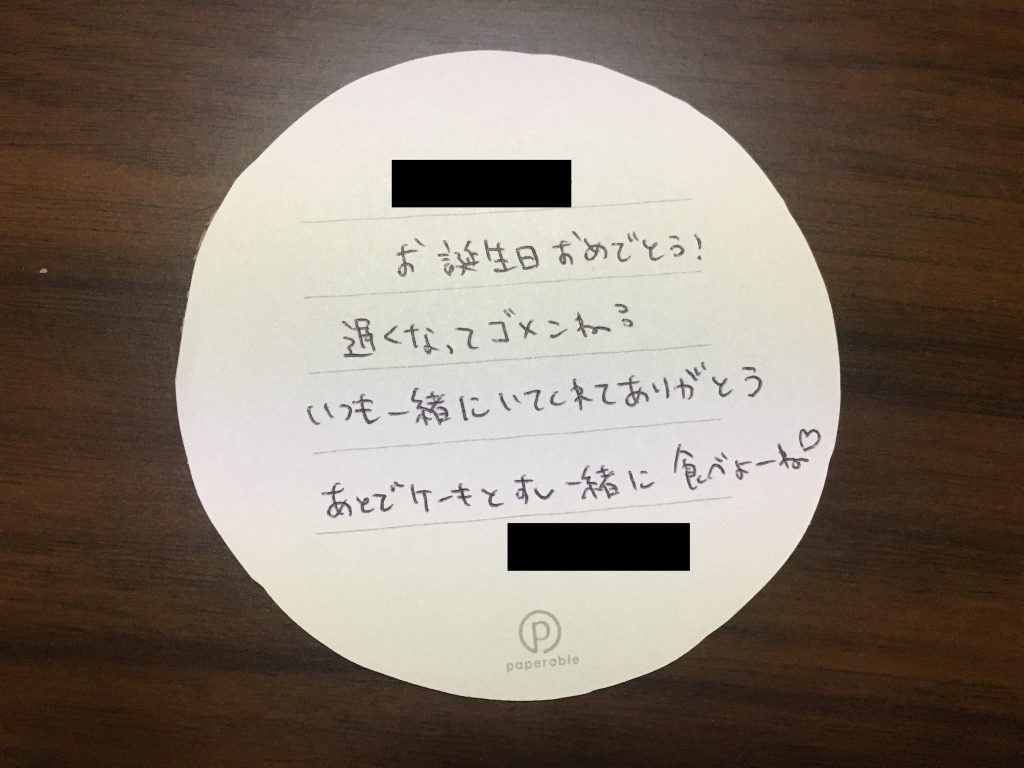 お誕生日おめでとう!
遅くなってゴメンね
いつも一緒にいてくれてありがとう
あとでケーキとすし一緒に食べよーね♡
paperable